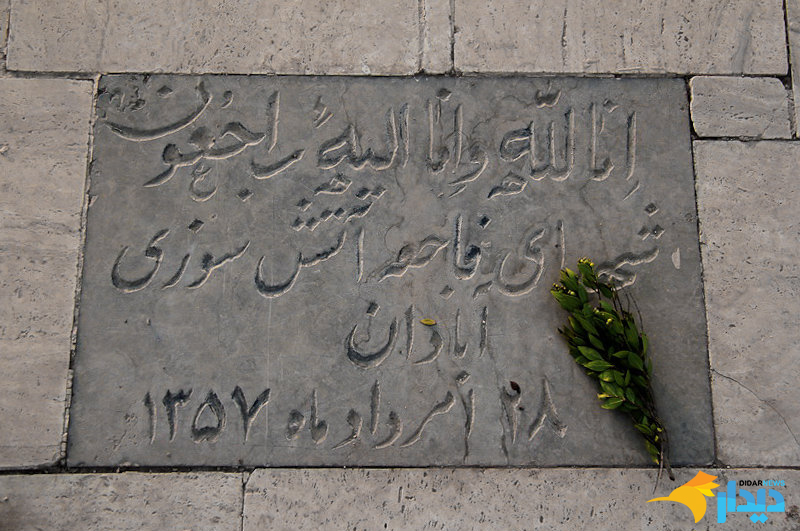 انا لله وانا الیه راجعون
شهدای فاجعه آتش سوزی
آبادان
۲۸ امرداد ماه ۱۳۵۷
DIDAR
دیدار